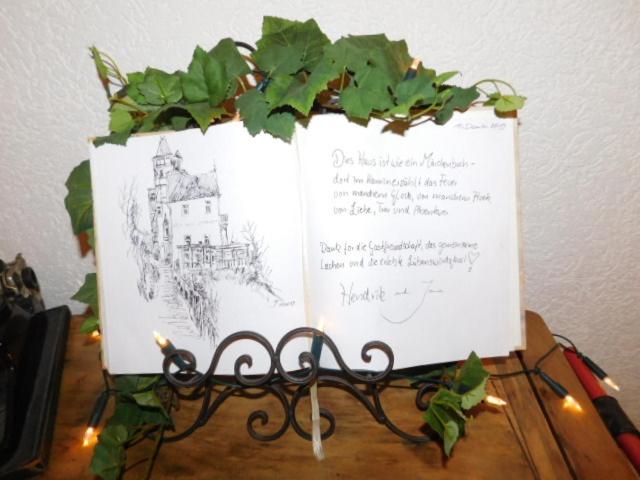 Dies Haus ist wie ein Märchenbuch -
dort im Kamin erzählt das Feuer
von manchem Glück, von manchem Fluch
von Liebe, Treu und Abenteuer.
Dank für die Gastfreundschaft, das gemeinsame
Lachen und die erlebte Lebenswürdigkeit
Hendrik und